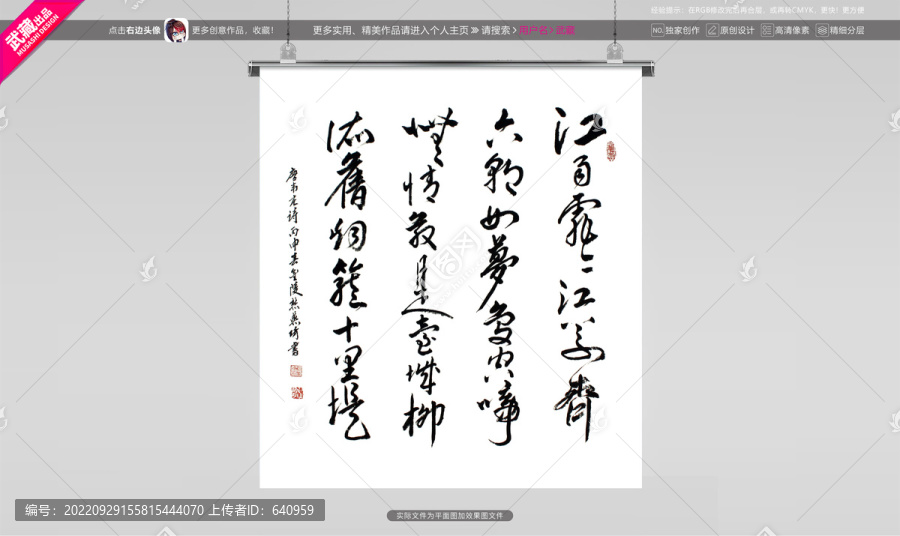 武藏出品
MUSASHI DESIGN
经验提示：在RGB修改完后再合层，或再转CMYK，更快！更方便
点击右边头像 更多创意作品，收藏！ 更多实用、精美作品请进入个人主页 >> 请搜索 > 用户名 > 武藏 NO. 独家创作 原创设计 高清像素 精细分层
江雨霏〻江草齊
六朝如夢鳥空啼
無情最是臺城柳
依舊烟籠十里堤
唐韋莊詩丙申春金陵 書
编号：20220929155815444070 上传者ID：640959
实际文件为平面图加效果图文件